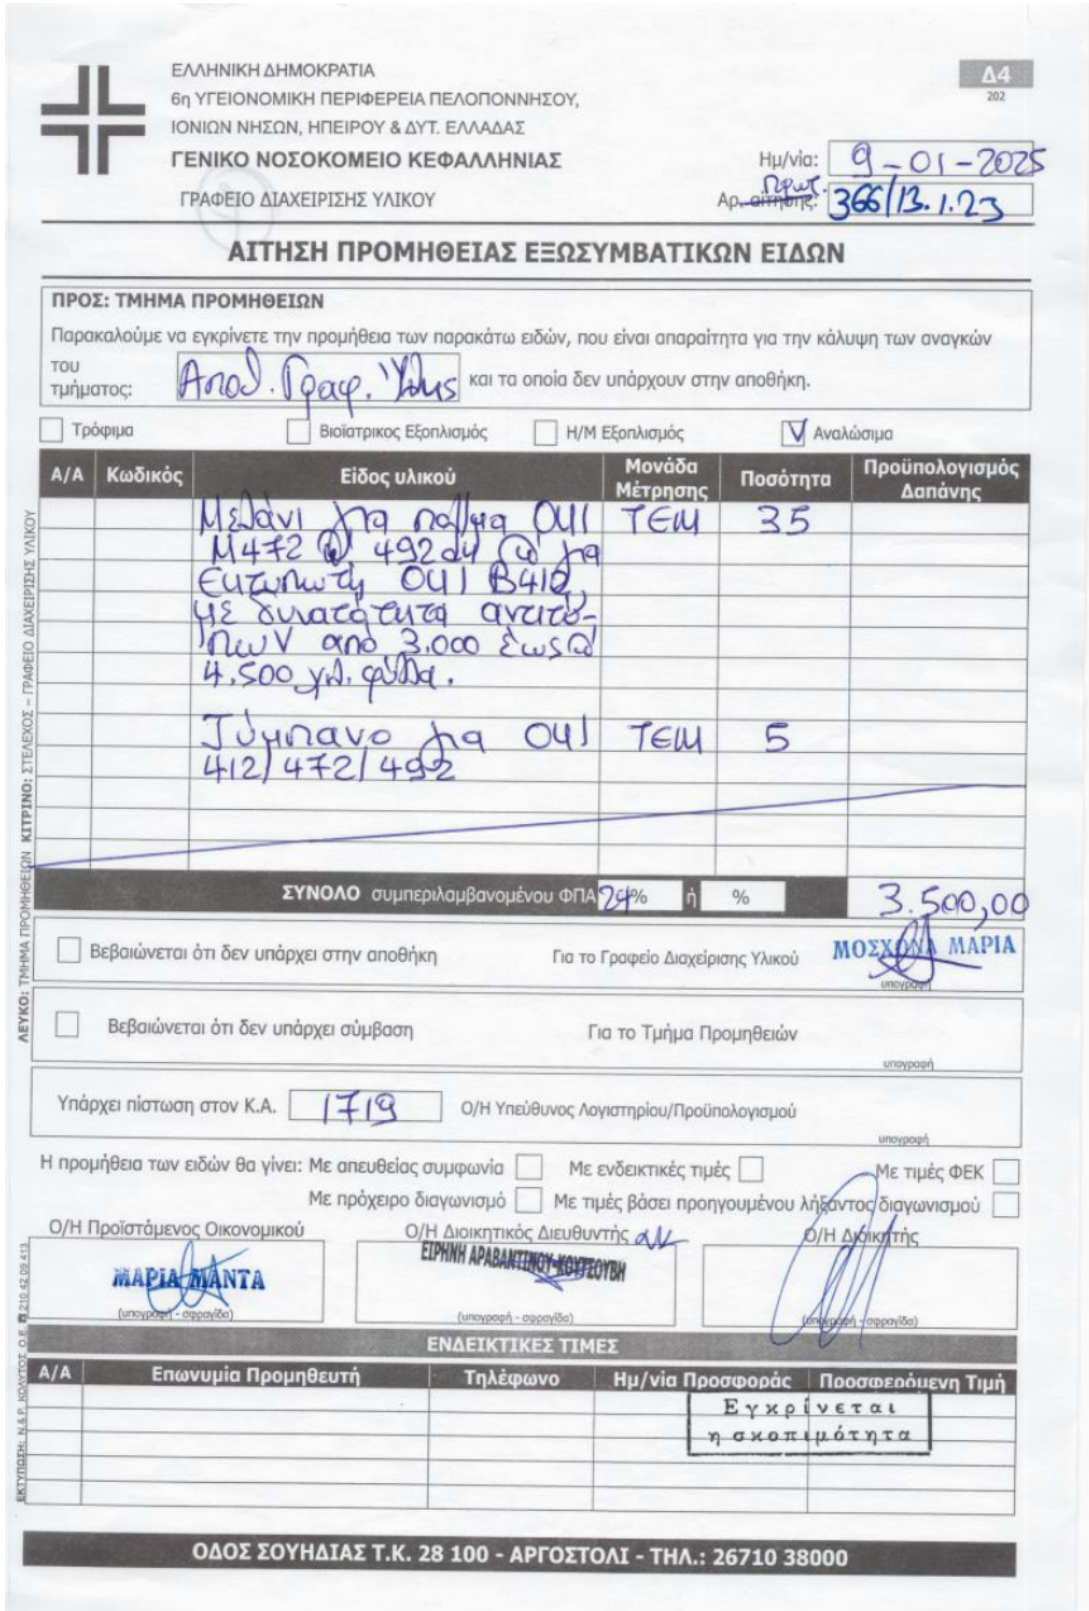 ΕΛΛΗΝΙΚΗ ΔΗΜΟΚΡΑΤΙΑ
6η ΥΓΕΙΟΝΟΜΙΚΗ ΠΕΡΙΦΕΡΕΙΑ ΠΕΛΟΠΟΝΝΗΣΟΥ,
ΙΟΝΙΩΝ ΝΗΣΩΝ, ΗΠΕΙΡΟΥ & ΔΥΤ. ΕΛΛΑΔΑΣ
ΓΕΝΙΚΟ ΝΟΣΟΚΟΜΕΙΟ ΚΕΦΑΛΛΗΝΙΑΣ
ΓΡΑΦΕΙΟ ΔΙΑΧΕΙΡΙΣΗΣ ΥΛΙΚΟΥ
Δ4
202
Ημ/νία: 9-01-2025
Πρωτ.
Αρ. αίτησης: 366/13.1.23
ΑΙΤΗΣΗ ΠΡΟΜΗΘΕΙΑΣ ΕΞΩΣΥΜΒΑΤΙΚΩΝ ΕΙΔΩΝ
ΠΡΟΣ: ΤΜΗΜΑ ΠΡΟΜΗΘΕΙΩΝ
Παρακαλούμε να εγκρίνετε την προμήθεια των παρακάτω ειδών, που είναι απαραίτητα για την κάλυψη των αναγκών
του τμήματος: Αποθ. Γραφ. Ύλης και τα οποία δεν υπάρχουν στην αποθήκη.
Τρόφιμα Βιοϊατρικος Εξοπλισμός Η/Μ Εξοπλισμός V Αναλώσιμα
Α/Α Κωδικός Είδος υλικού Μονάδα Μέτρησης Ποσότητα Προϋπολογισμός Δαπάνης
Μελάνι για πολ/μα OKI ΤΕΜ 35
M472 ή 492dn ή για
Εκτυπωτή OKI B412,
με δυνατότητα αντιτύ-
πων από 3.000 έως
4.500 χιλ. φύλλα.
Τύμπανο για OKI ΤΕΜ 5
412/472/492
ΣΥΝΟΛΟ συμπεριλαμβανομένου ΦΠΑ 24% ή % 3.500,00
Βεβαιώνεται ότι δεν υπάρχει στην αποθήκη Για το Γραφείο Διαχείρισης Υλικού ΜΟΣΧΟΝΑ ΜΑΡΙΑ
υπογραφή
Βεβαιώνεται ότι δεν υπάρχει σύμβαση Για το Τμήμα Προμηθειών
υπογραφή
Υπάρχει πίστωση στον Κ.Α. 1719 Ο/Η Υπεύθυνος Λογιστηρίου/Προϋπολογισμού
υπογραφή
Η προμήθεια των ειδών θα γίνει: Με απευθείας συμφωνία Με ενδεικτικές τιμές Με τιμές ΦΕΚ
Με πρόχειρο διαγωνισμό Με τιμές βάσει προηγουμένου λήξαντος διαγωνισμού
Ο/Η Προϊστάμενος Οικονομικού Ο/Η Διοικητικός Διευθυντής Ο/Η Διοικητής
ΜΑΡΙΑ ΜΑΝΤΑ ΕΙΡΗΝΗ ΑΡΑΒΑΝΤΙΝΟΥ-ΚΟΥΤΣΟΥΒΗ
(υπογραφή - σφραγίδα) (υπογραφή - σφραγίδα) (υπογραφή - σφραγίδα)
ΕΝΔΕΙΚΤΙΚΕΣ ΤΙΜΕΣ
Α/Α Επωνυμία Προμηθευτή Τηλέφωνο Ημ/νία Προσφοράς Προσφερόμενη Τιμή
Εγκρίνεται
η σκοπιμότητα
ΟΔΟΣ ΣΟΥΗΔΙΑΣ Τ.Κ. 28 100 - ΑΡΓΟΣΤΟΛΙ - ΤΗΛ.: 26710 38000
ΛΕΥΚΟ: ΤΜΗΜΑ ΠΡΟΜΗΘΕΙΩΝ ΚΙΤΡΙΝΟ: ΣΤΕΛΕΧΟΣ – ΓΡΑΦΕΙΟ ΔΙΑΧΕΙΡΙΣΗΣ ΥΛΙΚΟΥ
ΕΚΤΥΠΩΣΗ: Ν.&Ρ. ΚΟΛΥΤΟΣ Ο.Ε. 210 42 09 413